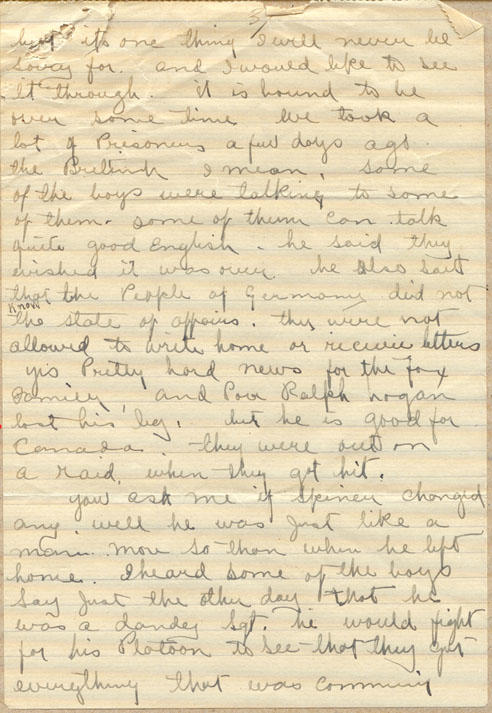 3/
but it's one thing I will never be
sorry for. and I would like to see
it through. it is bound to be
over some time We took a
lot of Prisoners a few days ago.
the Bretish I mean, some
of the boys were talking to some
of them. some of them can talk
quite good English. he said they
wished it was over. he also said
that the People of Germany did not
Know
the state of affairs. they were not
allowed to write home or receive letters
yis Pretty hard news for the fox
Family, and Poor Ralph hogan
lost his leg, but he is good for
Canada. they were out on
a raid, when they got hit.
you ask me if changed
any. well he was Just like a
man. more so than when he left
home. I heard some of the boys
say Just the other day that he
was a dandey Sgt. he would fight
for his Platoon to see that they got
everything that was comming